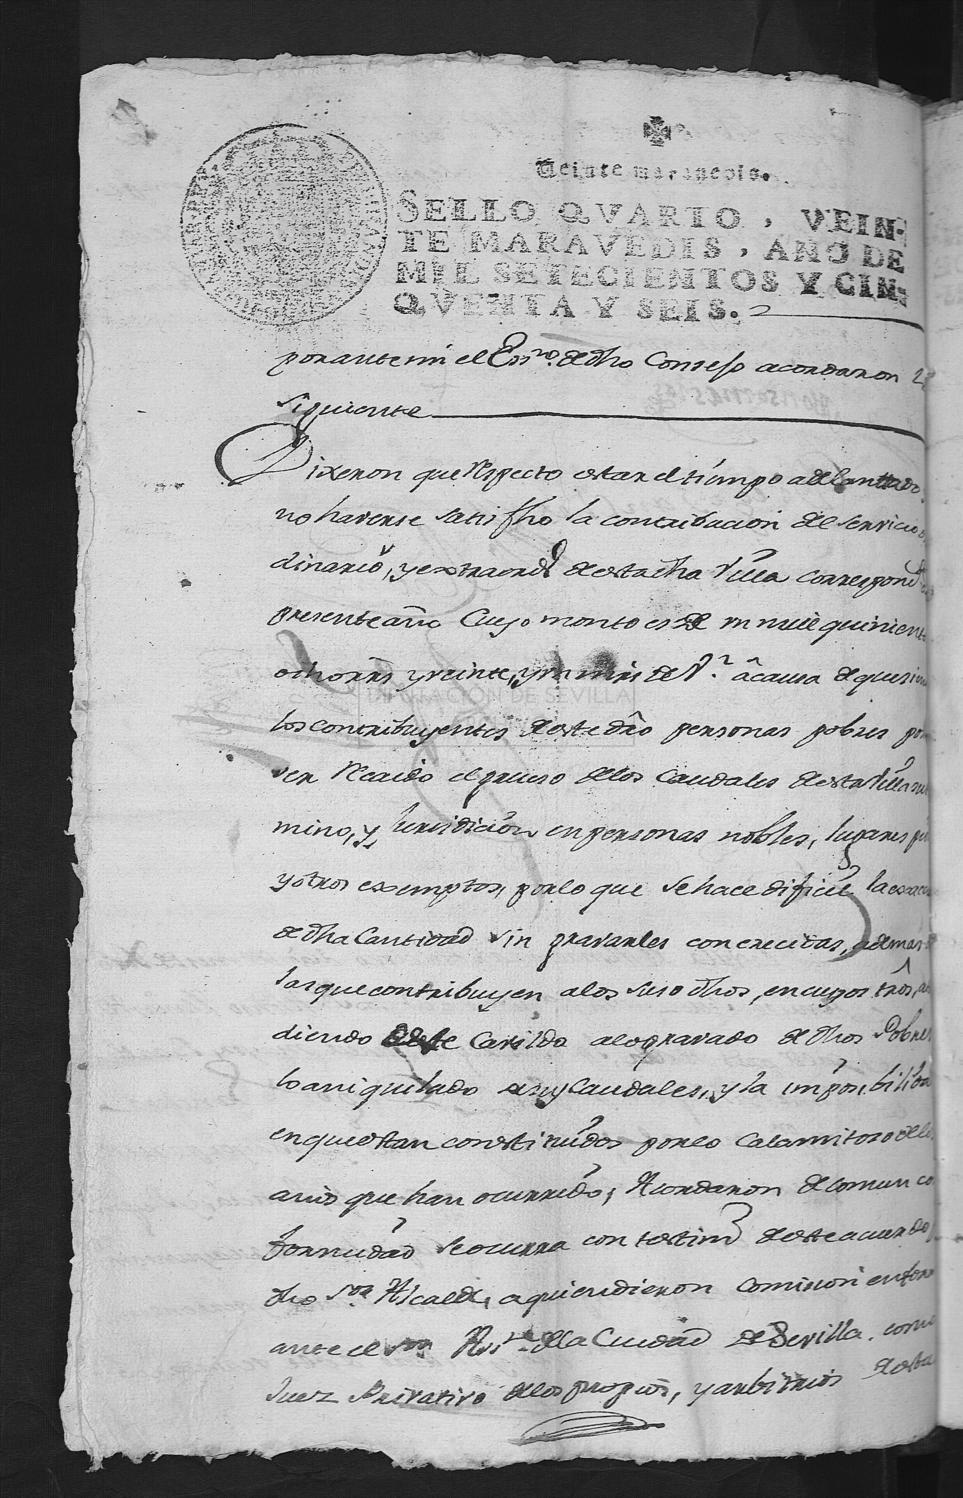 Veinte maravedis.
SELLO QVARTO, VEIN-
TE MARAVEDIS, AÑO DE
MIL SETECIENTOS Y CIN-
QVENTA Y SEIS.
por ante mi el Essno. de dho Consejo acordaron
siguiente
Dixeron que respecto estar el tiempo adelantado
no haverse satisfho la contribucion del servicio
dinario, y extraord de esta dha Villa correspond
presente año Cuyo monto es de un mill quinient
ocho rrs y veinte, y un mrs de Vn. a causa de que
los contribuyentes de este dro personas pobres
ver recaido el grueso de los Caudales de esta Villa
mino, y Jurisdicion en personas nobles, lugares
y otros exemptos, por lo que se hace dificil la
de dha Cantidad sin gravarles con crecidas, ademas
las que contribuyen a los suso dhos, en cuyos tros,
diendo este Cavildo a lo gravado de dhos Pobres
lo aniquilado de sus Caudales, y la imposibilida
en que estan constituidos por lo Calamitoso de
años que han ocurrido, Acordaron de comun co
formidad se ocurra con testimo de este acuerdo
dho sor. Alcalde, a quien dieron Comision en forma
ante el sor Asste. de la Ciudad de Sevilla. como
Juez Privativo de los propios, y arbitrios de esta
DIPUTACIÓN DE SEVILLA